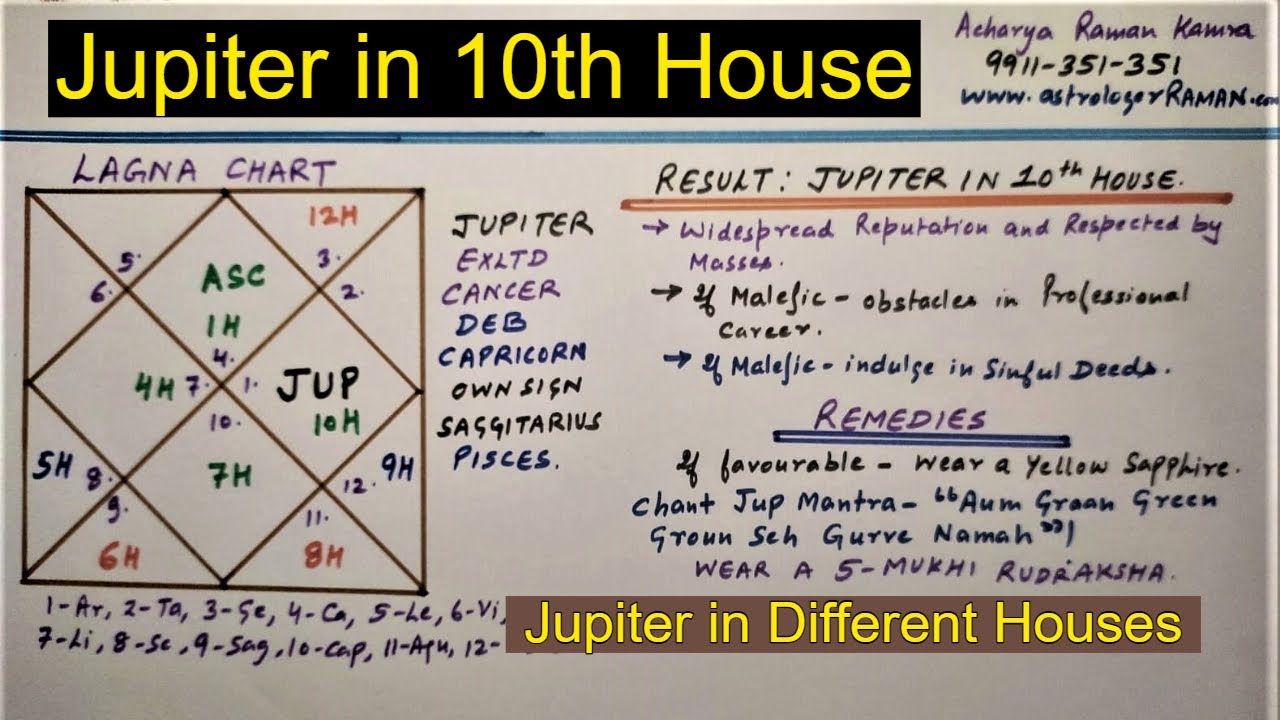 Jupiter in 10th House
Acharya Raman Kamra
9911-351-351
www.astrologerRAMAN.com
LAGNA CHART
12H
5.
3.
6.
ASC
2.
1H
4.
4H
7.
1.
JUP
10.
10H
5H
8.
7H
12.
9H
9.
11.
6H
8H
JUPITER
EXLTD
CANCER
DEB
CAPRICORN
OWN SIGN
SAGGITARIUS
PISCES.
RESULT: JUPITER IN 10th HOUSE.
→ Widespread Reputation and Respected by
Masses.
→ If Malefic - obstacles in Professional
Career.
→ If Malefic - indulge in Sinful Deeds.
REMEDIES
If favourable - wear a Yellow Sapphire.
Chant Jup Mantra - "Aum Graan Green
Groun Seh Gurve Namah"|
WEAR A 5-MUKHI RUDRAKSHA.
1-Ar, 2-Ta, 3-Ge, 4-Ca, 5-Le, 6-Vi,
7-Li, 8-Sc, 9-Sag, 10-Cap, 11-Aqu, 12-
Jupiter in Different Houses